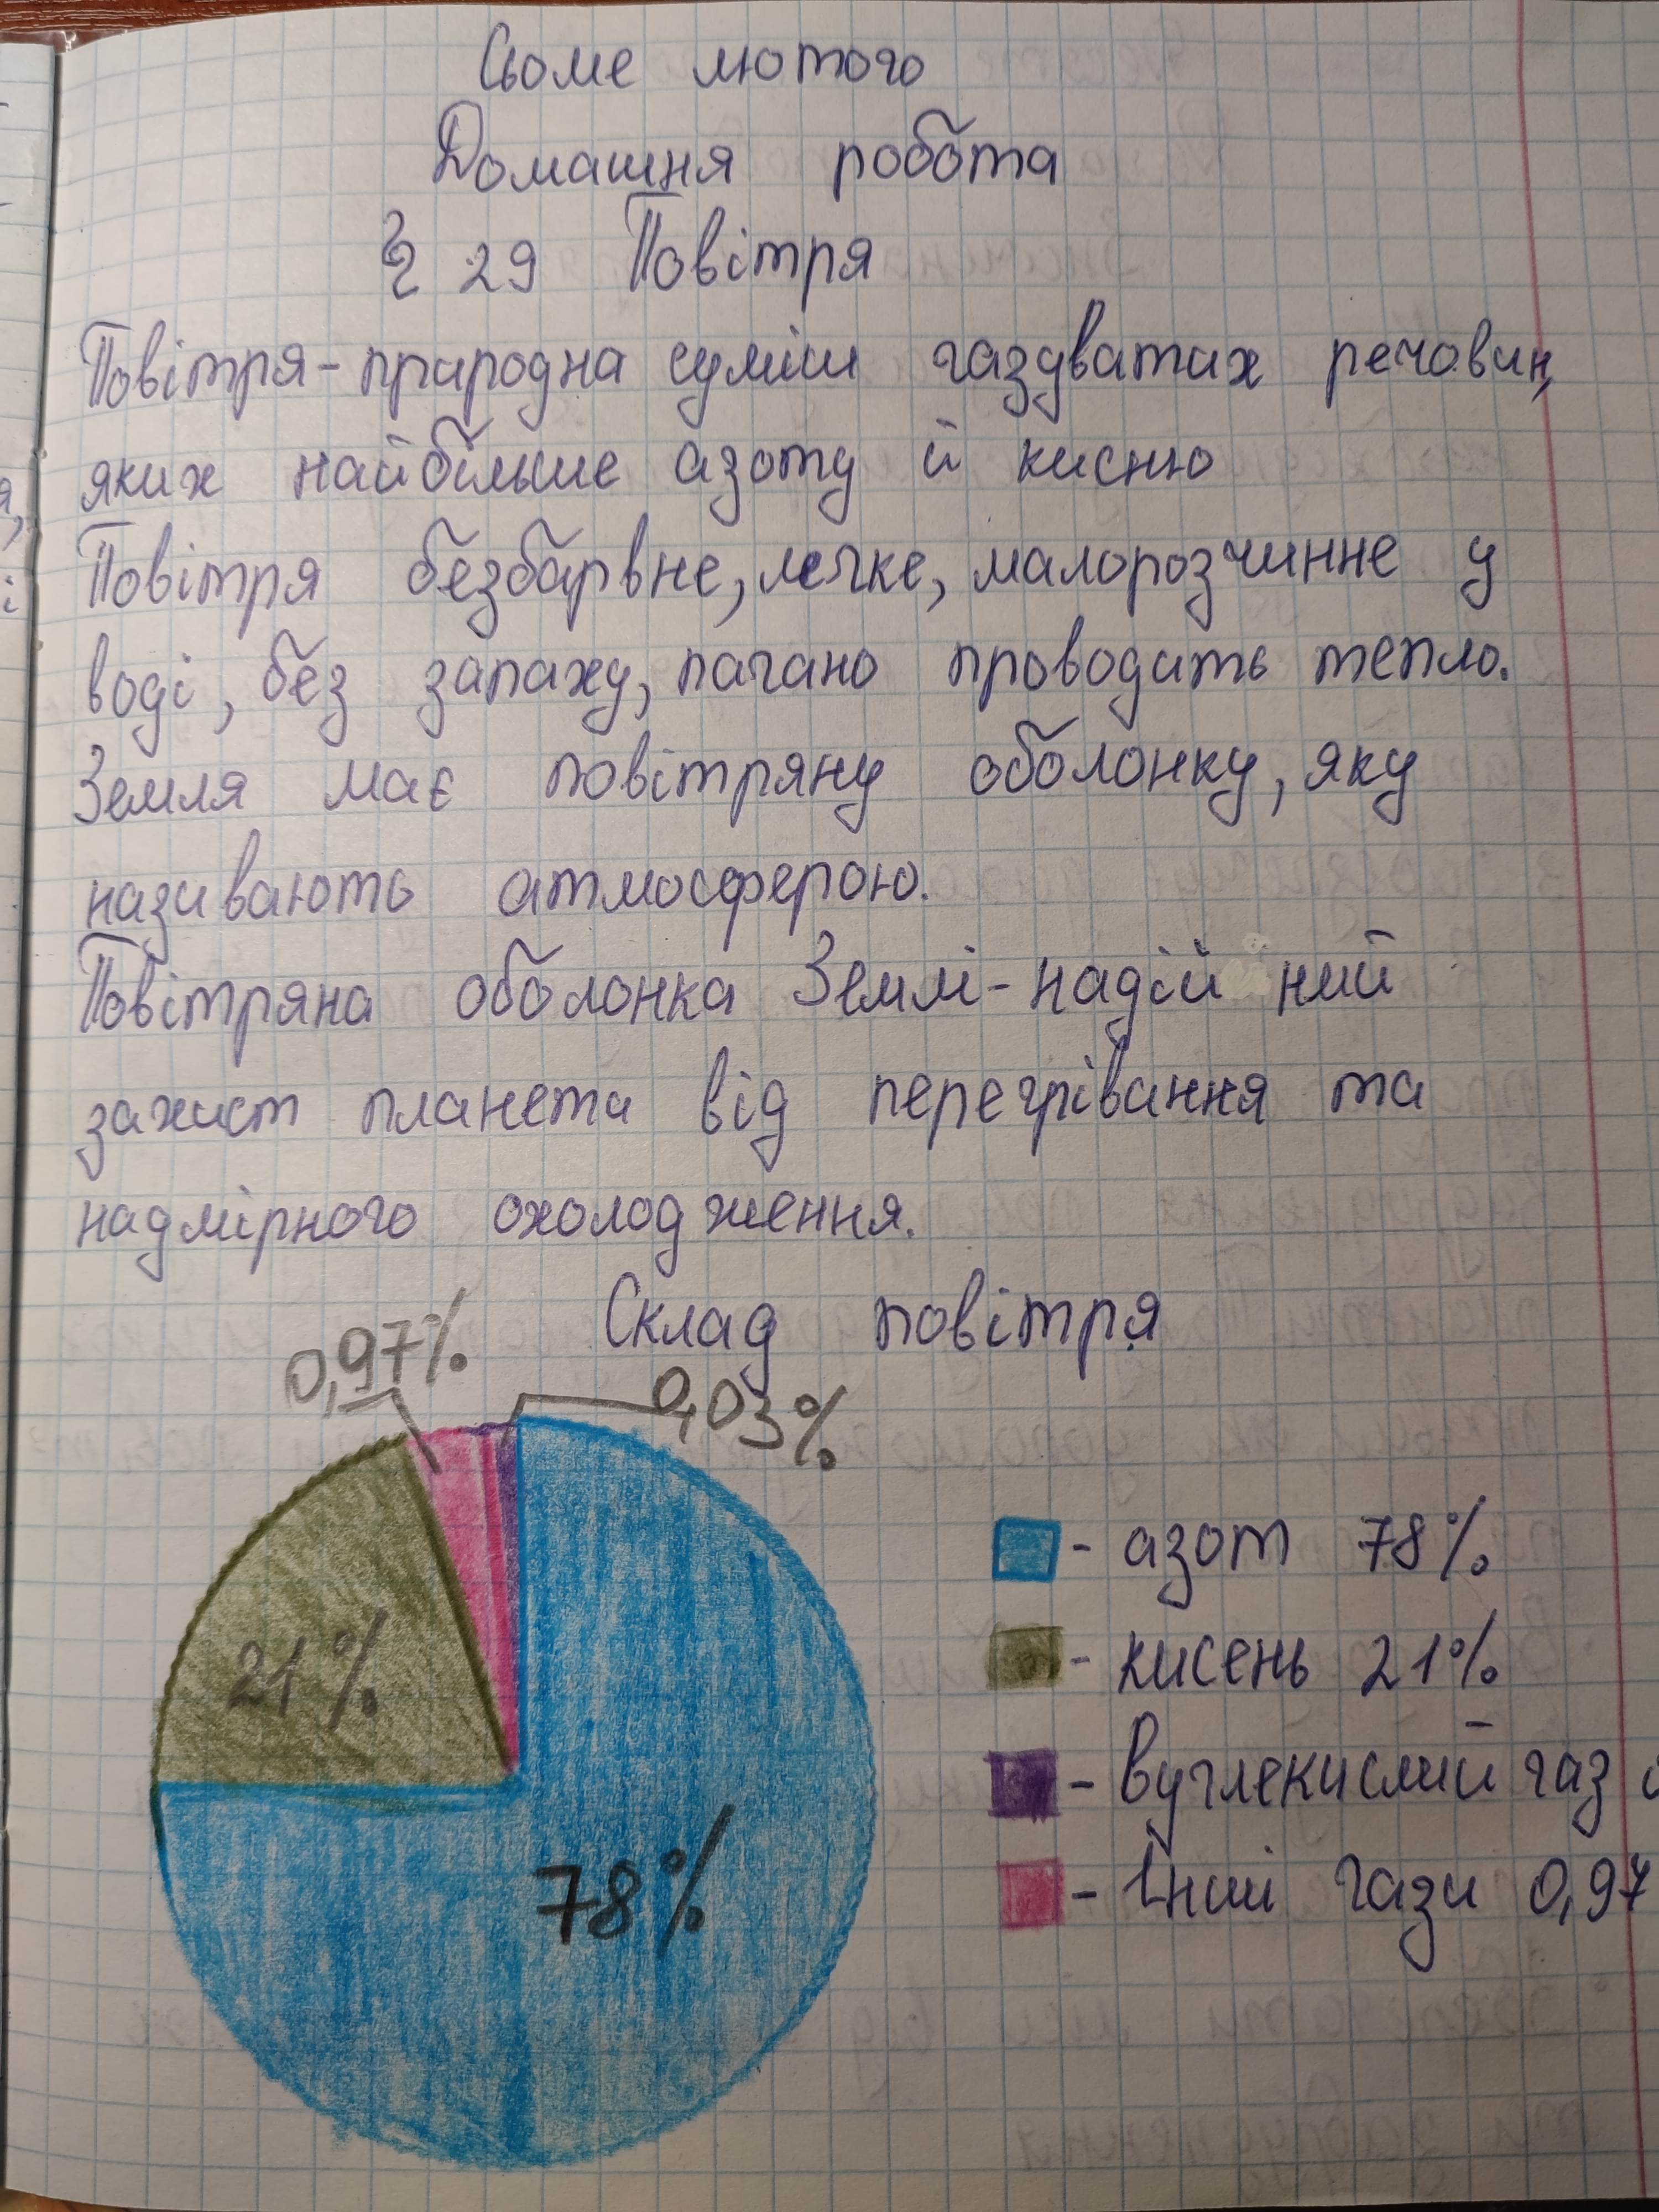 Сьоме лютого
Домашня робота
§ 29 Повітря
Повітря - природна суміш газуватих речовин,
яких найбільше азоту й кисню
Повітря безбарвне, легке, малорозчинне у
воді, без запаху, погано проводить тепло.
Земля має повітряну оболонку, яку
називають атмосферою.
Повітряна оболонка Землі - надійний
захист планети від перегрівання та
надмірного охолодження.
Склад повітря
0,97%
0,03%
21%
78%
- азот 78%
- кисень 21%
- вуглекислий газ
- Інші гази 0,97